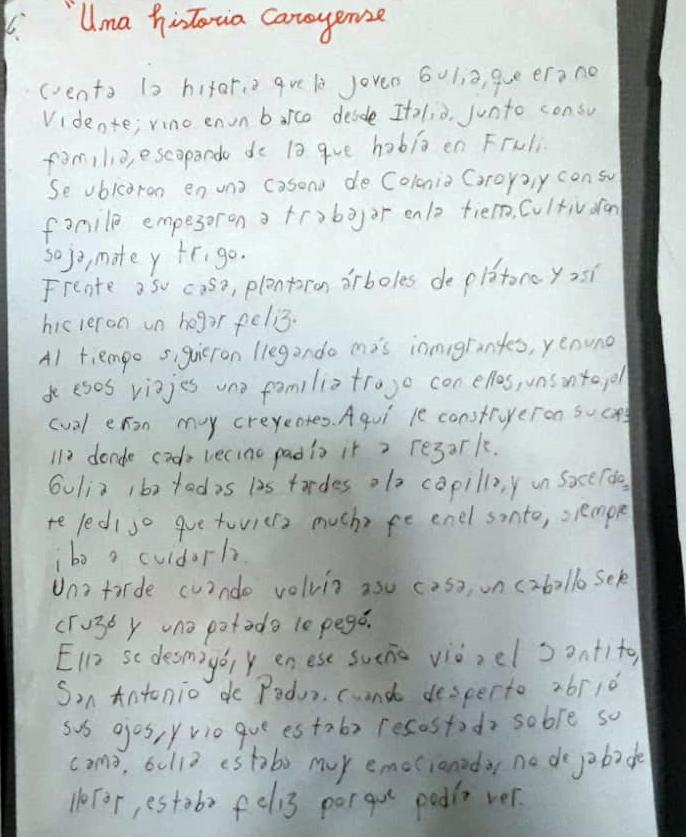 "Una historia caroyense
Cuenta la hitoria que la joven Gulia, que era no
Vidente; vino en un barco desde Italia, junto con su
familia, escapando de la que había en Fruli.
Se ubicaron en una casona de Colonia Caroya, y con su
familia empezaron a trabajar en la tierra. Cultivaron
soja, mate y trigo.
Frente a su casa, plantaron árboles de plátano y así
hicieron un hogar feliz.
Al tiempo siguieron llegando más inmigrantes, y en uno
de esos viajes una familia trajo con ellos, un santo, al
cual eran muy creyentes. Aquí le construyeron su capi
lla donde cada vecino podía ir a rezarle.
Gulia iba todas las tardes a la capilla, y un sacerdo_
te le dijo que tuviera mucha fe en el santo, siempre
iba a cuidarla.
Una tarde cuando volvía a su casa, un caballo se le
cruzó y una patada le pegó.
Ella se desmayó, y en ese sueño vió a el Santito,
San Antonio de Padua. Cuando desperto abrió
sus ojos, y vio que estaba recostada sobre su
cama. Gulia estaba muy emocionada, no dejaba de
llorar, estaba feliz porque podía ver.